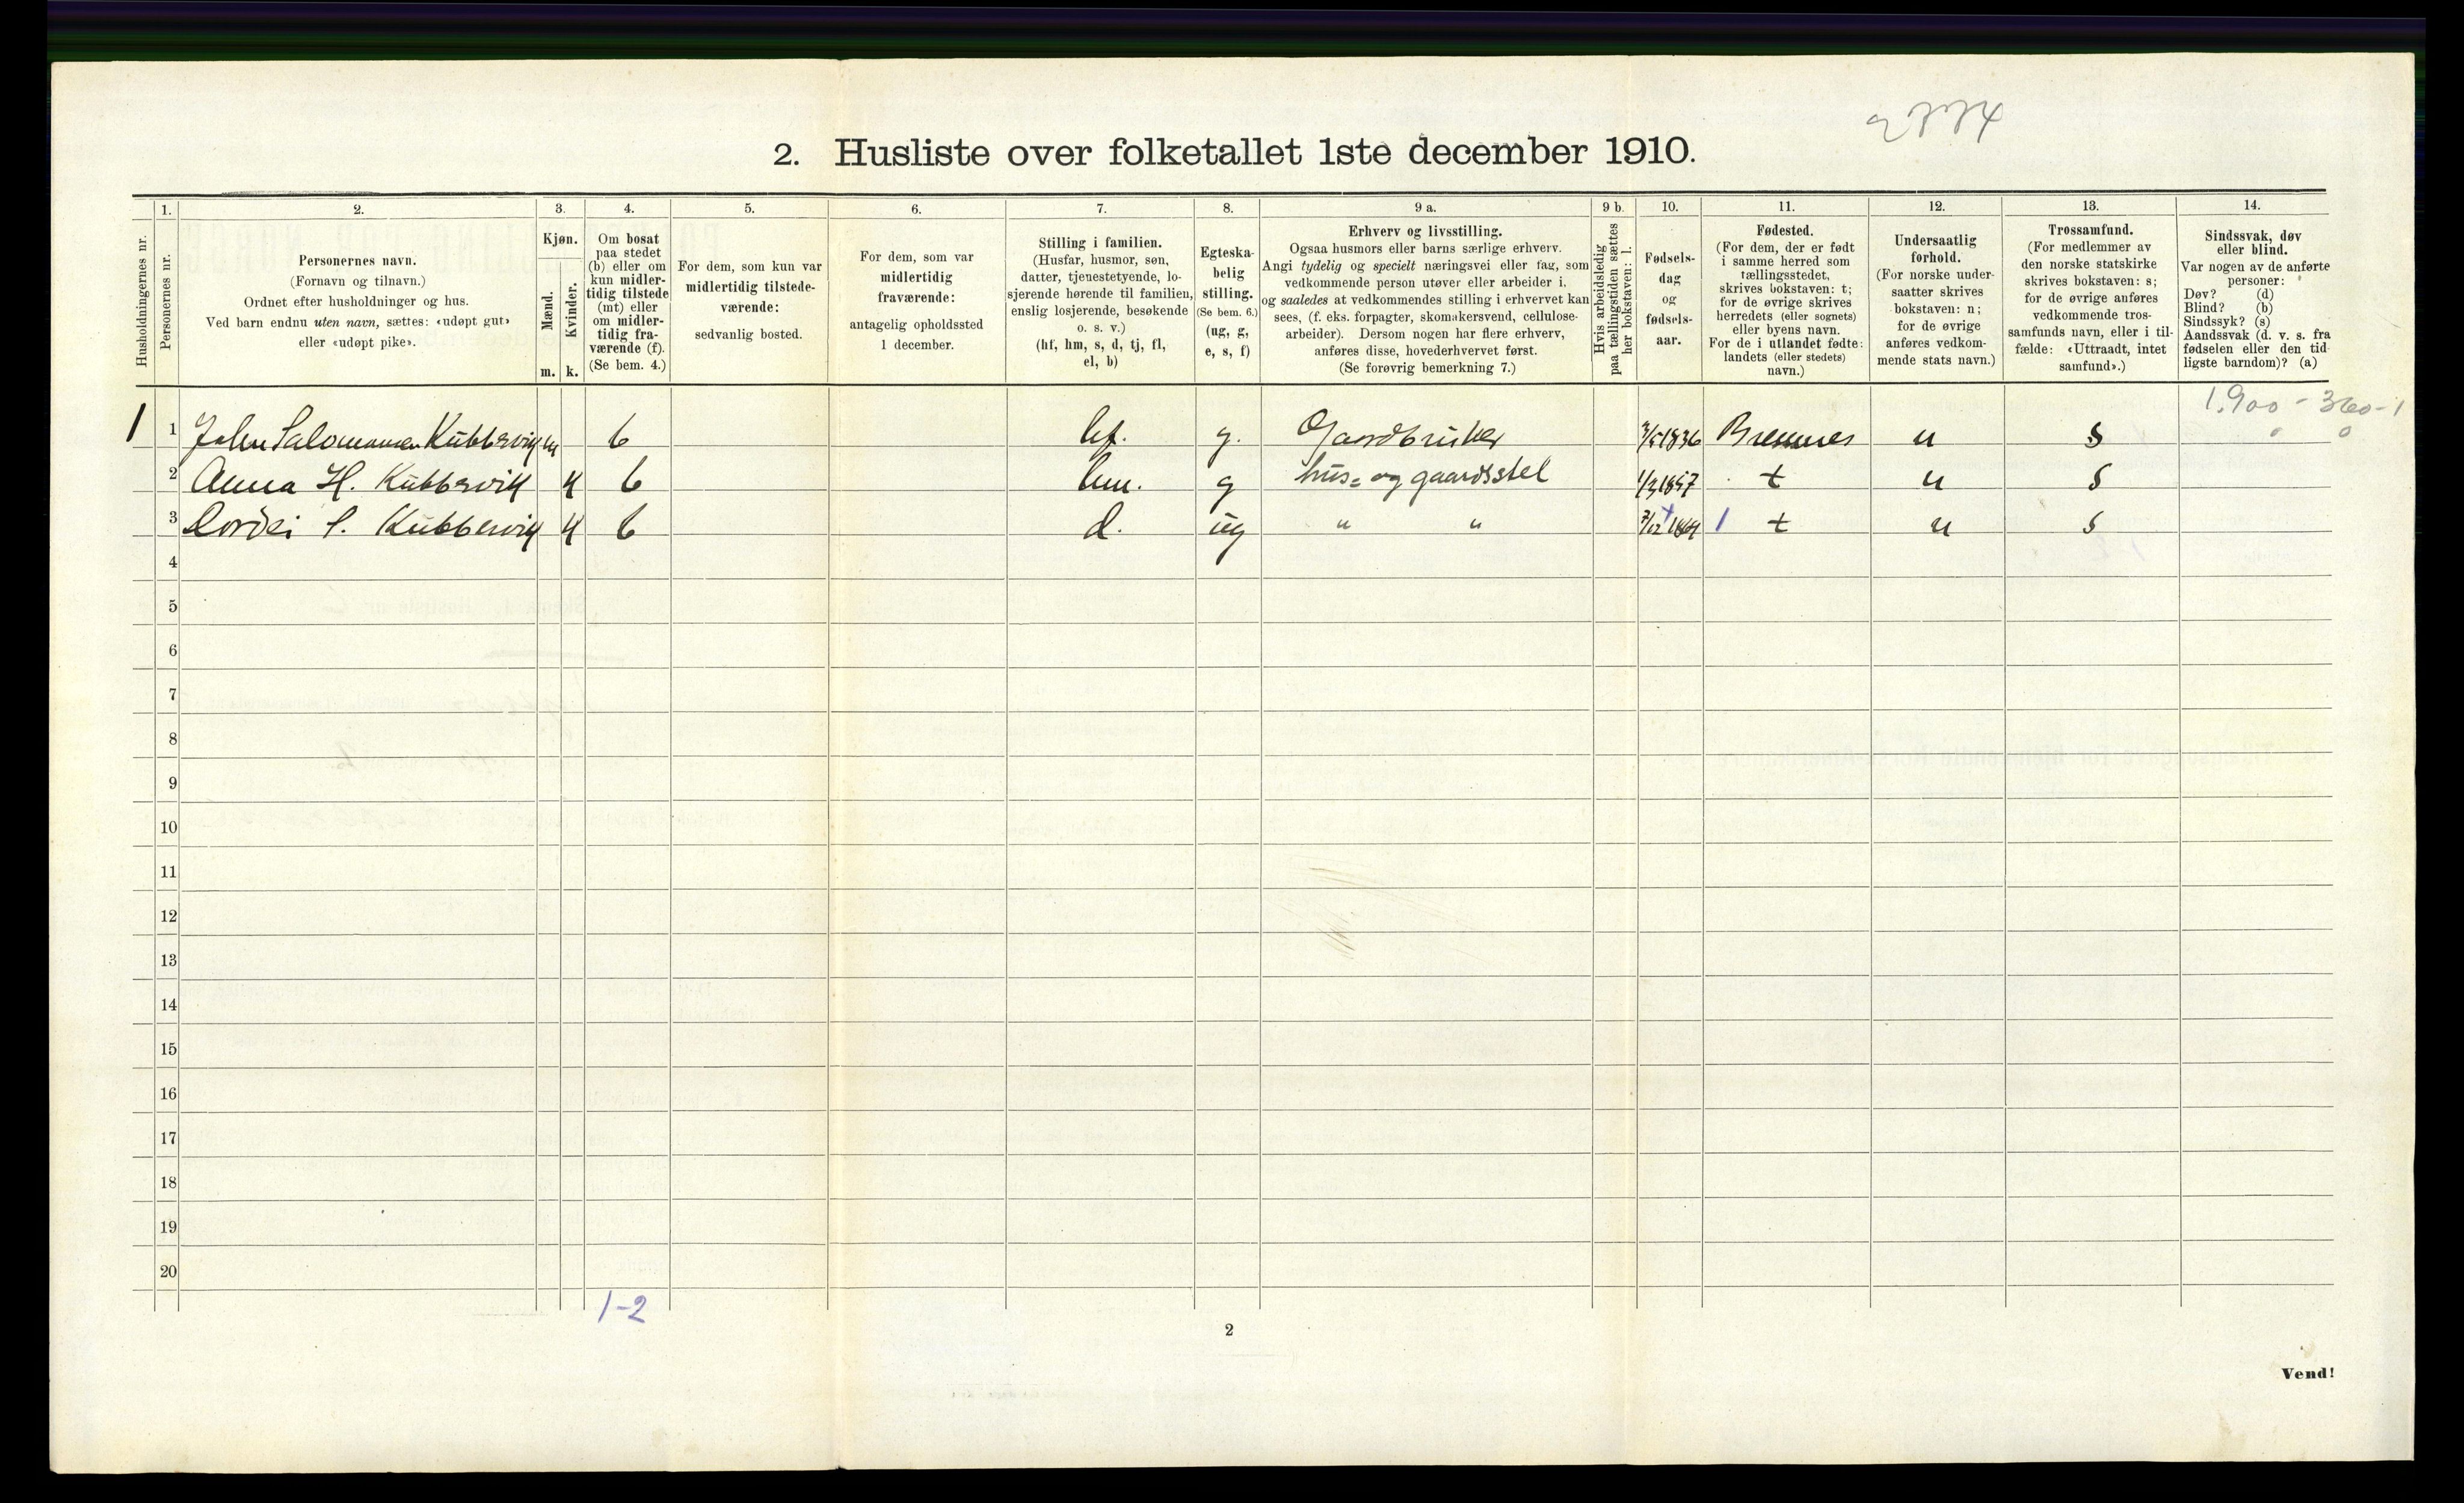 2. Husliste over folketallet 1ste december 1910.
1. 2. 3. 4. 5. 6. 7. 8. 9 a. 9 b. 10. 11. 12. 13. 14.
Husholdningernes nr.
Personernes nr.
Personernes navn.
(Fornavn og tilnavn.)
Ordnet efter husholdninger og hus.
Ved barn endnu uten navn, sættes: «udøpt gut»
eller «udøpt pike».
Kjøn.
Mænd.
Kvinder.
m. k.
Om bosat
paa stedet
(b) eller om
kun midler-
tidig tilstede
(mt) eller
om midler-
tidig fra-
værende (f).
(Se bem. 4.)
For dem, som kun var
midlertidig tilstede-
værende:
sedvanlig bosted.
For dem, som var
midlertidig
fraværende:
antagelig opholdssted
1 december.
Stilling i familien.
(Husfar, husmor, søn,
datter, tjenestetyende, lo-
sjerende hørende til familien,
enslig losjerende, besøkende
o. s. v.)
(hf, hm, s, d, tj, fl,
el, b)
Egteska-
belig
stilling.
(Se bem. 6.)
(ug, g,
e, s, f)
Erhverv og livsstilling.
Ogsaa husmors eller barns særlige erhverv.
Angi tydelig og specielt næringsvei eller fag, som
vedkommende person utøver eller arbeider i,
og saaledes at vedkommendes stilling i erhvervet kan
sees, (f. eks. forpagter, skomakersvend, cellulose-
arbeider). Dersom nogen har flere erhverv,
anføres disse, hovederhvervet først.
(Se forøvrig bemerkning 7.)
Hvis arbeidsledig
paa tællingstiden sættes
her bokstaven: l.
Fødsels-
dag
og
fødsels-
aar.
Fødested.
(For dem, der er født
i samme herred som
tællingsstedet,
skrives bokstaven: t;
for de øvrige skrives
herredets (eller sognets)
eller byens navn.
For de i utlandet fødte:
landets (eller stedets)
navn.)
Undersaatlig
forhold.
(For norske under-
saatter skrives
bokstaven: n;
for de øvrige
anføres vedkom-
mende stats navn.)
Trossamfund.
(For medlemmer av
den norske statskirke
skrives bokstaven: s;
for de øvrige anføres
vedkommende tros-
samfunds navn, eller i til-
fælde: «Uttraadt, intet
samfund».)
Sindssvak, døv
eller blind.
Var nogen av de anførte
personer:
Døv? (d)
Blind? (b)
Sindssyk? (s)
Aandssvak (d. v. s. fra
fødselen eller den tid-
ligste barndom)? (a)
1.900 - 360 - 1
1 1 John Salomonsen Kubbervig m b hf. g. Gaardbruker 3/5 1836 Bremnes n s
2 Anna H. Kubbervik k b hm. g hus= og gaardsstel t n s
3 S. Kubbervik k b d. ug " " t n s
4
5
6
7
8
9
10
11
12
13
14
15
16
17
18
19
20
1-2
2
Vend!